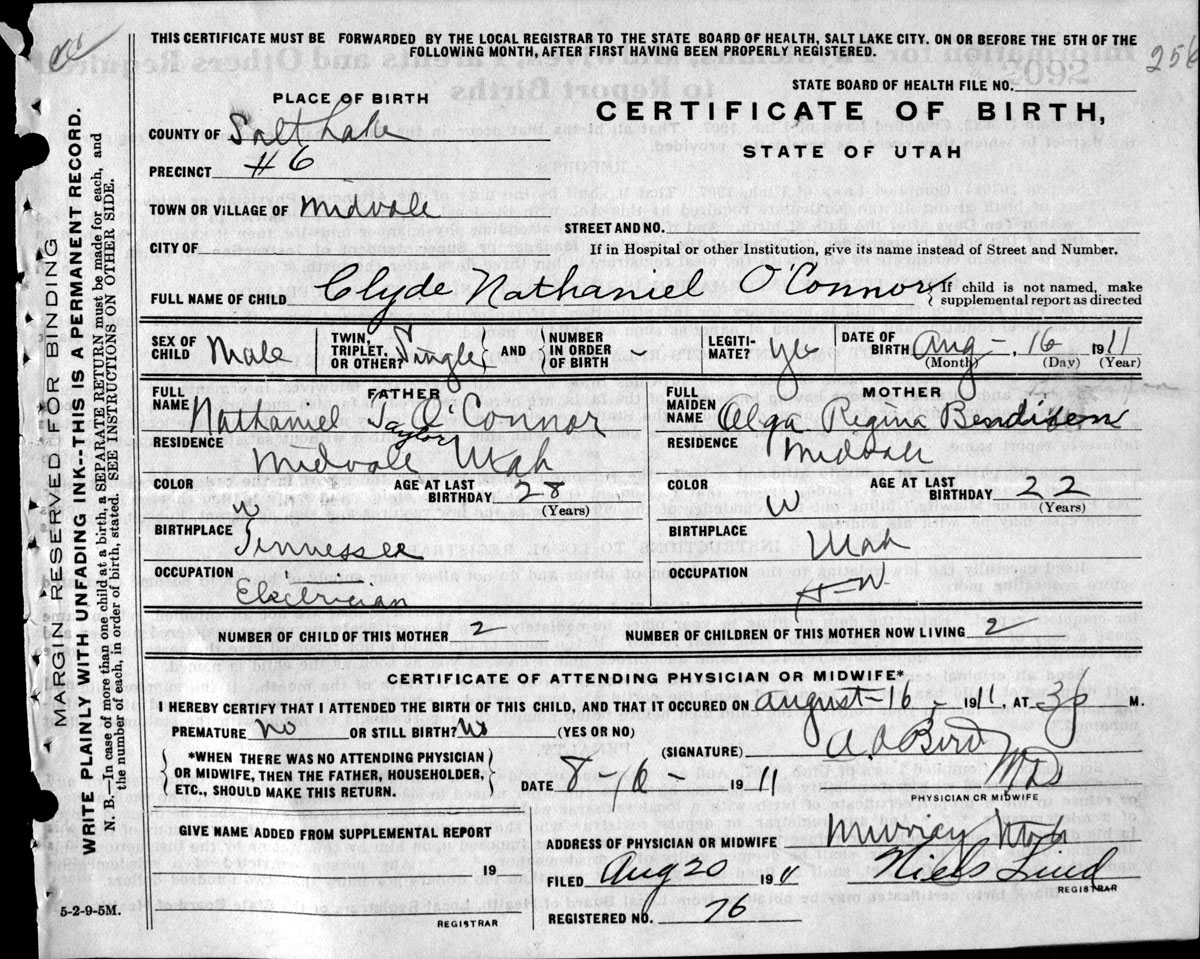 THIS CERTIFICATE MUST BE FORWARDED BY THE LOCAL REGISTRAR TO THE STATE BOARD OF HEALTH, SALT LAKE CITY, ON OR BEFORE THE 5TH OF THE
FOLLOWING MONTH, AFTER FIRST HAVING BEEN PROPERLY REGISTERED.
256
2092
STATE BOARD OF HEALTH FILE NO.
PLACE OF BIRTH
CERTIFICATE OF BIRTH,
STATE OF UTAH
COUNTY OF Salt Lake
PRECINCT #6
TOWN OR VILLAGE OF Midvale
STREET AND NO.
CITY OF
If in Hospital or other Institution, give its name instead of Street and Number.
FULL NAME OF CHILD Clyde Nathaniel O'Connor
If child is not named, make
supplemental report as directed
SEX OF CHILD Male
TWIN, TRIPLET, OR OTHER? Single
AND
NUMBER IN ORDER OF BIRTH -
LEGITI-MATE? Yes
DATE OF BIRTH Aug - , 16 1911
(Month) (Day) (Year)
FATHER
FULL NAME Nathaniel T. O'Connor
Taylor
RESIDENCE Midvale Utah
COLOR W
AGE AT LAST BIRTHDAY 28
(Years)
BIRTHPLACE Tennessee
OCCUPATION Electrician
MOTHER
FULL MAIDEN NAME Olga Regina Bendixen
RESIDENCE Midvale
COLOR W
AGE AT LAST BIRTHDAY 22
(Years)
BIRTHPLACE Utah
OCCUPATION H-W
NUMBER OF CHILD OF THIS MOTHER 2
NUMBER OF CHILDREN OF THIS MOTHER NOW LIVING 2
CERTIFICATE OF ATTENDING PHYSICIAN OR MIDWIFE*
I HEREBY CERTIFY THAT I ATTENDED THE BIRTH OF THIS CHILD, AND THAT IT OCCURED ON August-16 - 1911, AT 3p M.
PREMATURE No OR STILL BIRTH? No (YES OR NO)
(SIGNATURE) Bird MD
PHYSICIAN OR MIDWIFE
*WHEN THERE WAS NO ATTENDING PHYSICIAN
OR MIDWIFE, THEN THE FATHER, HOUSEHOLDER,
ETC., SHOULD MAKE THIS RETURN.
DATE 8-16 1911
GIVE NAME ADDED FROM SUPPLEMENTAL REPORT
19
REGISTRAR
ADDRESS OF PHYSICIAN OR MIDWIFE Murray Utah
FILED Aug 20 1911 Niels Lind
REGISTRAR
REGISTERED NO. 76
5-2-9-5M.
MARGIN RESERVED FOR BINDING
WRITE PLAINLY WITH UNFADING INK--THIS IS A PERMANENT RECORD.
N. B.—In case of more than one child at a birth, a SEPARATE RETURN must be made for each, and
the number of each, in order of birth, stated. SEE INSTRUCTIONS ON OTHER SIDE.